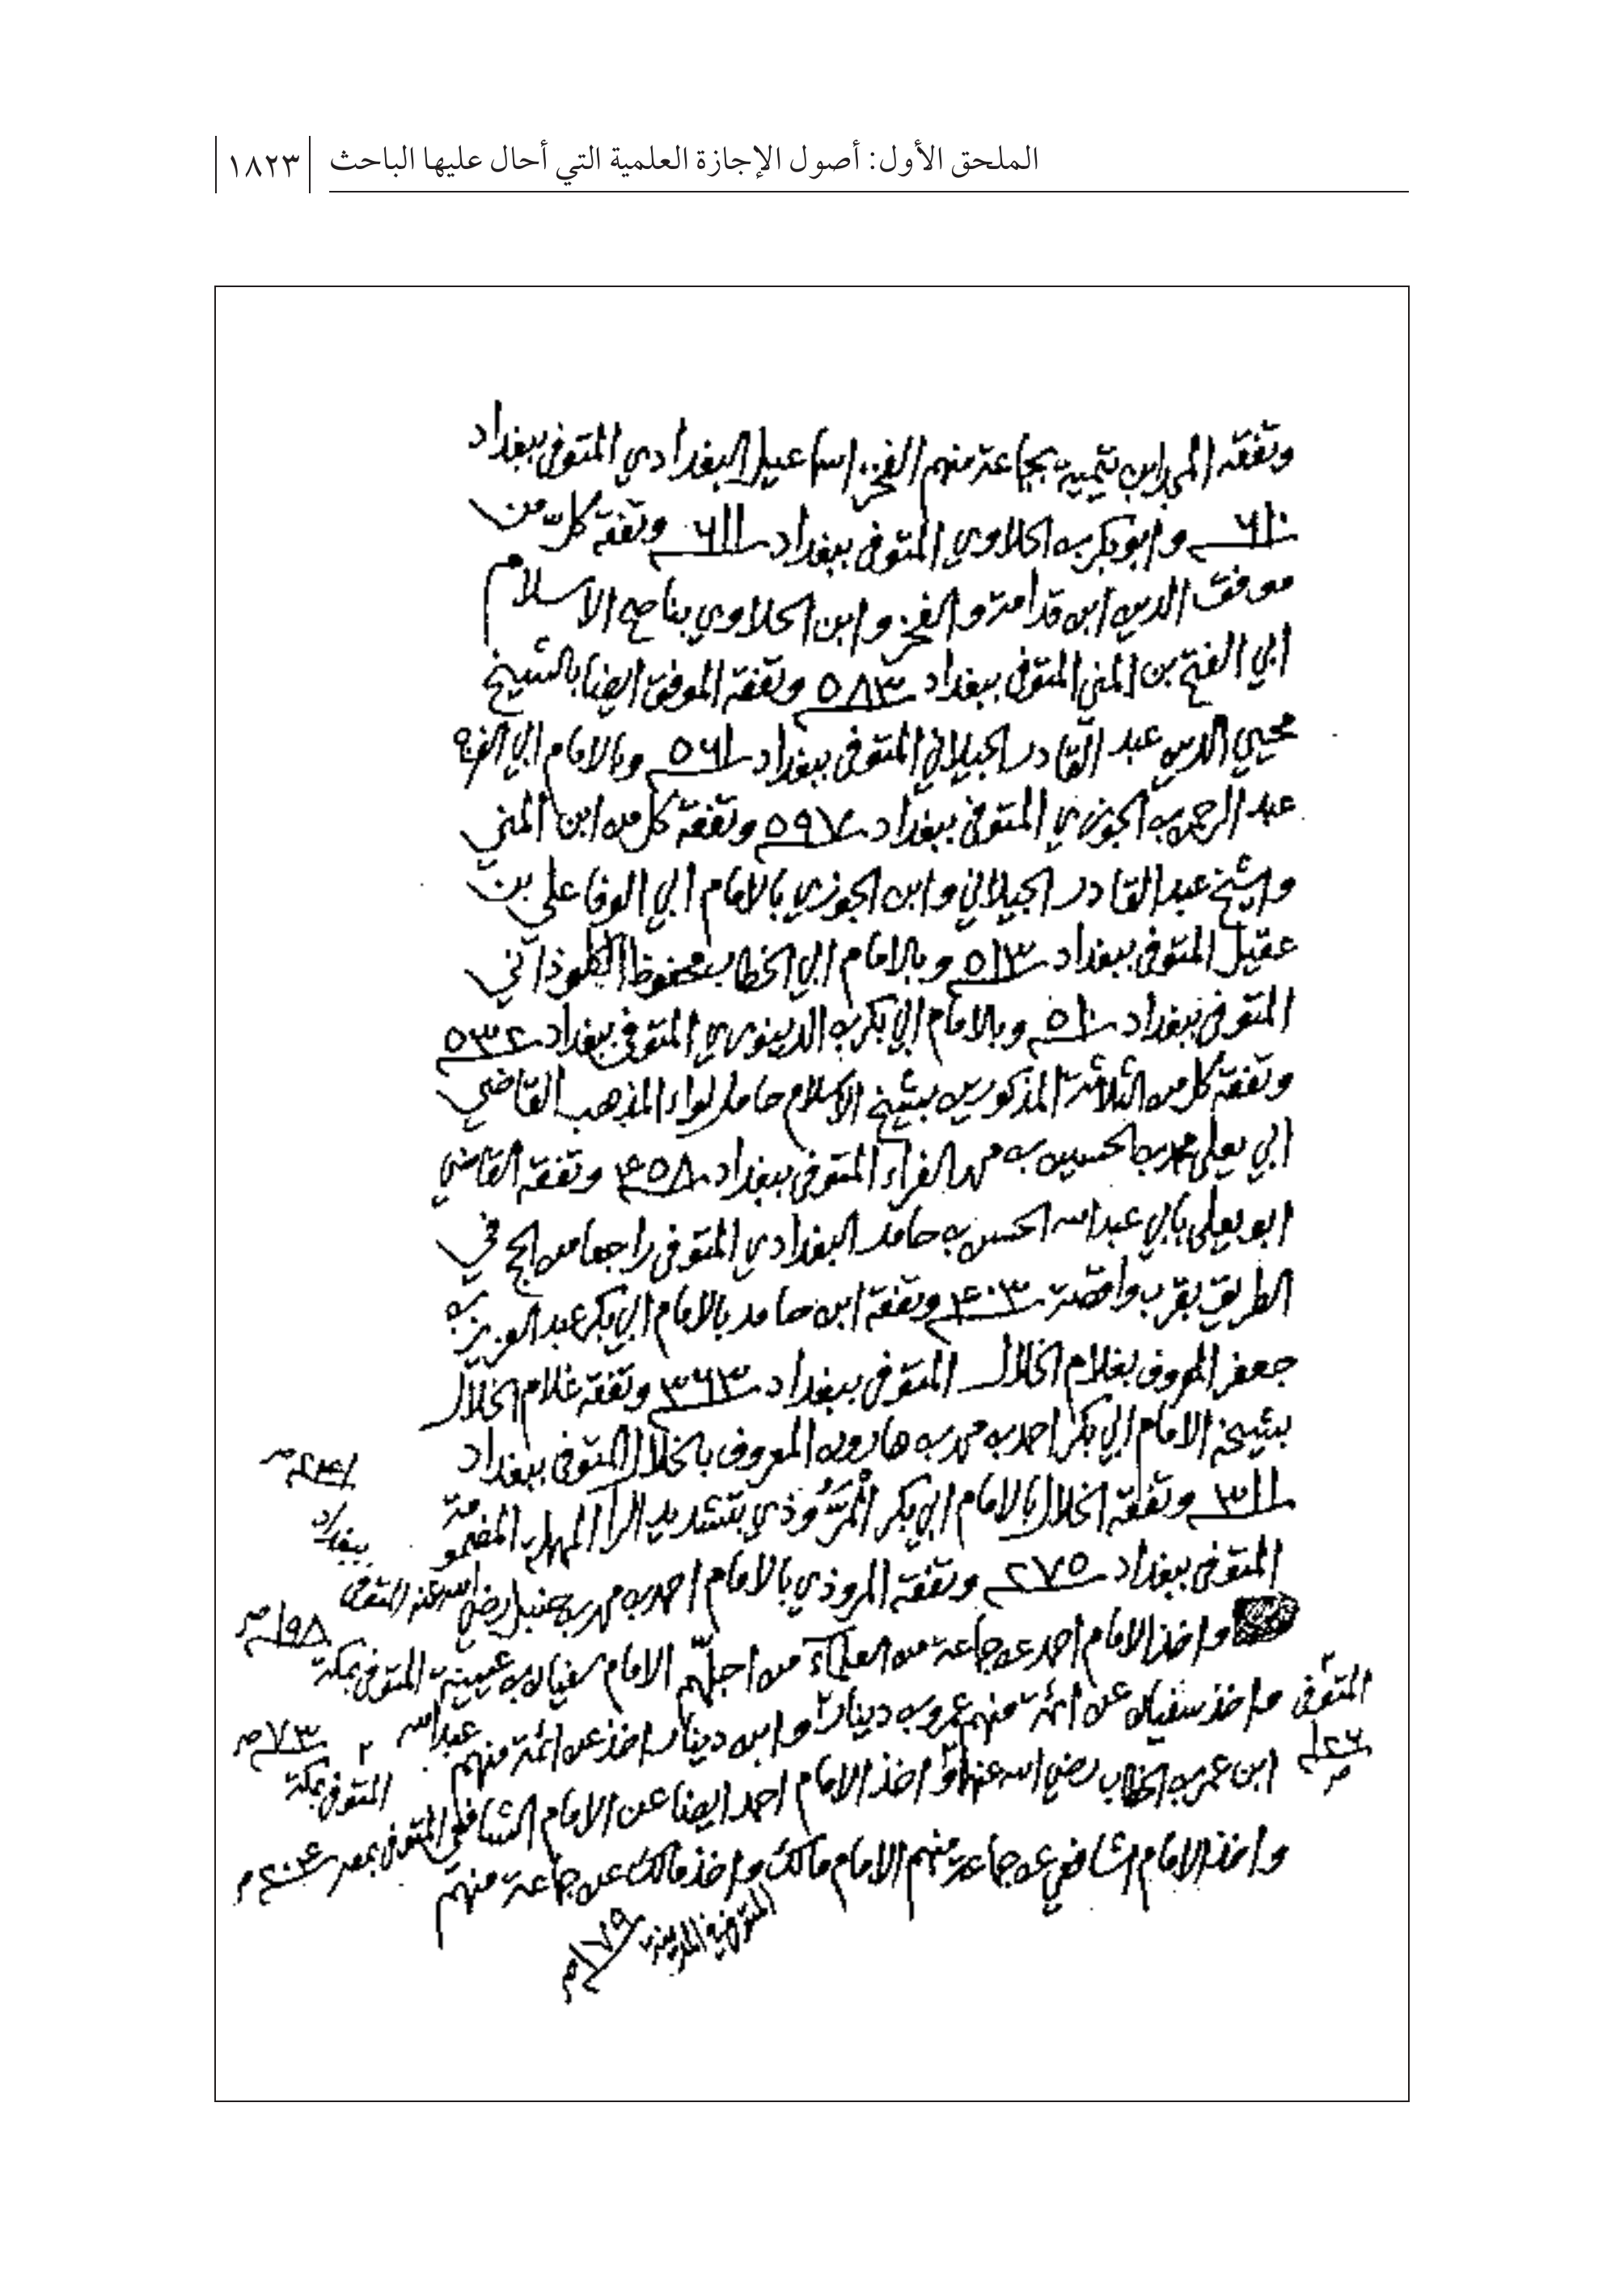 الملحق الأول: أصول الإجازة العلمية التي أحال عليها الباحث ١٨٢٣
وتفقه المجد ابن تيميه بجماعة منهم الفخر اسماعيل البغدادي المتوفى ببغداد
٦١٠ وابو بكر بن الحلاوي المتوفى ببغداد ٦١١ وتفقه كل من
موفق الدين ابن قدامة والفخر وابن الحلاوي بناصح الاسلام
ابي الفتح بن المني المتوفى ببغداد ٥٨٣ وتفقه الموفق ايضا بالشيخ
محيي الدين عبد القادر الجيلاني المتوفى ببغداد ٥٦١ وبالامام ابي الفرج
عبد الرحمن بن الجوزي المتوفى ببغداد ٥٩٧ وتفقه كل من ابن المني
والشيخ عبد القادر الجيلاني وابن الجوزي بالامام ابي الوفا علي بن
عقيل المتوفى ببغداد ٥١٣ وبالامام ابي الخطاب محفوظ الكلوذاني
المتوفى ببغداد ٥١٠ وبالامام ابي بكر بن الدينوري المتوفى ببغداد ٥٣٢
وتفقه كل من الثلاثة المذكورين بشيخ الاسلام حامل لواء المذهب القاضي
ابي يعلى محمد بن الحسين بن محمد الفراء المتوفى ببغداد ٤٥٨ وتفقه القاضي
ابو يعلى بابي عبد الله الحسن بن حامد البغدادي المتوفى راجعا من الحج في
الطريق بقرب واقصة ٤٠٣ وتفقه ابن حامد بالامام ابي بكر عبد العزيز بن
جعفر المعروف بغلام الخلال المتوفى ببغداد ٣٦٣ وتفقه غلام الخلال
بشيخه الامام ابي بكر احمد بن محمد بن هارون المعروف بالخلال المتوفى ببغداد
٣١١ وتفقه الخلال بالامام ابي بكر المَرُّوذي بتشديد الرآ المهملة المضمومة
المتوفى ببغداد ٢٧٥ وتفقه المروذي بالامام احمد بن محمد بن حنبل رضي الله عنه المتوفى
ببغداد
٢٤١ هـ
واخذ الامام احمد عن جماعة من العلمآء من اجلّهم الامام سفيان بن عيينة المتوفى بمكة
١٩٨ هـ
واخذ سفيان عن ائمة منهم عمرو بن دينار وابن دينار اخذ عن ائمة منهم عبد الله
المتوفى
١٢٦
ابن عمر بن الخطاب رضي الله عنهما واخذ الامام احمد ايضا عن الامام الشافعي المتوفى بمصر ٢٠٤
المتوفى بمكة
٧٣ هـ
واخذ الامام الشافعي عن جماعة منهم الامام مالك واخذ مالك عن جماعة منهم
المتوفى بالمدينة ١٧٩